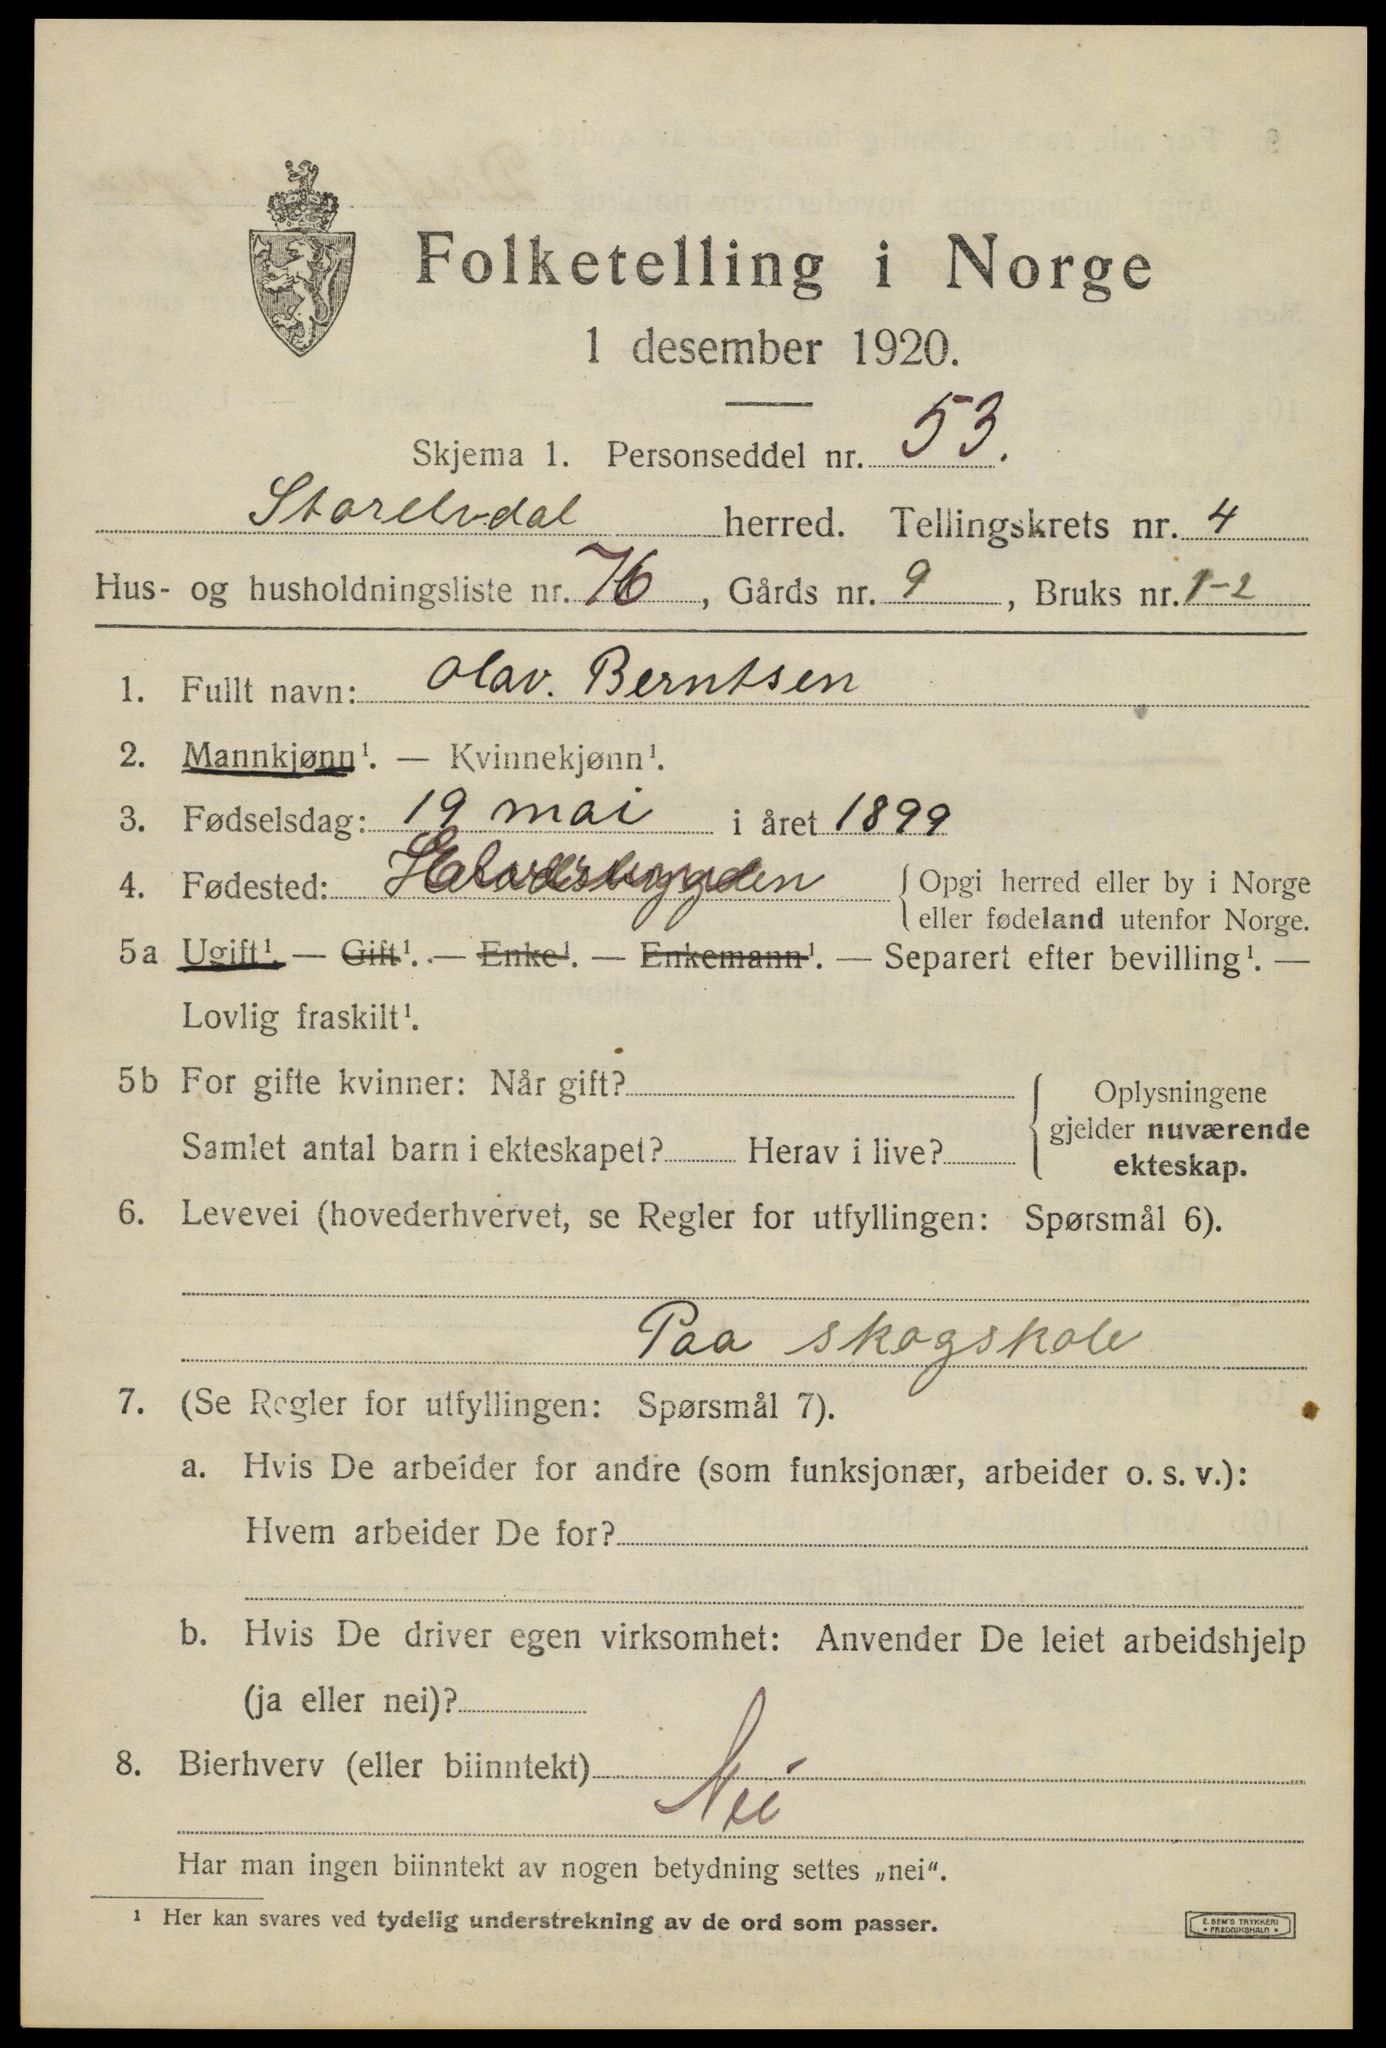 Folketelling i Norge
1 desember 1920.
Skjema 1. Personseddel nr. 53.
Storelvdal herred. Tellingskrets nr. 4
Hus- og husholdningsliste nr. 76, Gårds nr. 9, Bruks nr. 1-2
1. Fullt navn: Olav. Berntsen
2. Mannkjønn¹. — Kvinnekjønn¹.
3. Fødselsdag: 19 mai i året 1899
4. Fødested: { Opgi herred eller by i Norge
eller fødeland utenfor Norge.
5a Ugift¹. — Gift¹. — Enke¹. — Enkemann¹. — Separert efter bevilling¹. —
Lovlig fraskilt¹.
5b For gifte kvinner: Når gift? { Oplysningene
gjelder nuværende
Samlet antal barn i ekteskapet? Herav i live? ekteskap.
6. Levevei (hovederhvervet, se Regler for utfyllingen: Spørsmål 6).
Paa skogskole
7. (Se Regler for utfyllingen: Spørsmål 7).
a. Hvis De arbeider for andre (som funksjonær, arbeider o. s. v.):
Hvem arbeider De for?
b. Hvis De driver egen virksomhet: Anvender De leiet arbeidshjelp
(ja eller nei)?
8. Bierhverv (eller biinntekt) Nei
Har man ingen biinntekt av nogen betydning settes „nei“.
¹ Her kan svares ved tydelig understrekning av de ord som passer.
E. SEM'S TRYKKERI
• FREDRIKSHALD •